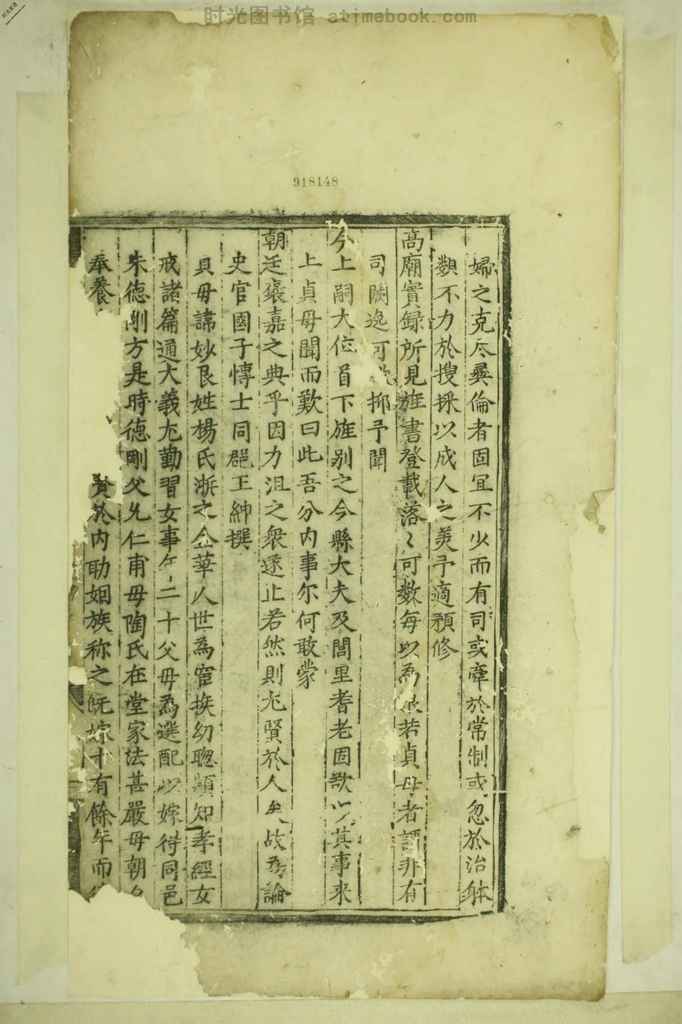 时光图书馆 atimebook.com
918148
婦之克尽彛倫者固冝不少而有司或牽於常制或忽於治躰
類不力於搜採以成人之美予適預修
髙廟實録所見旌書登載落〻可数每以為若貞母者謂非有
司闕逸可抑予聞
今上嗣大位首下旌别之令縣大夫及閭里耆老固欲以其事來
上貞母聞而歎曰此吾分内事尔何敢蒙
朝廷褒嘉之典乎因力沮之衆遂止若然則尤賢於人矣故為論
史官國子慱士同郡王紳撰
貞母諱妙良姓楊氏浙之金華人世為宦族幼聰頴知孝經女
戒諸篇通大義尤勤習女事年二十父母為選配以嫁得同邑
朱德剛方是時德剛父允仁甫母陶氏在堂家法甚嚴母朝夕
奉養賛於内助姻族称之既嫁十有餘年而